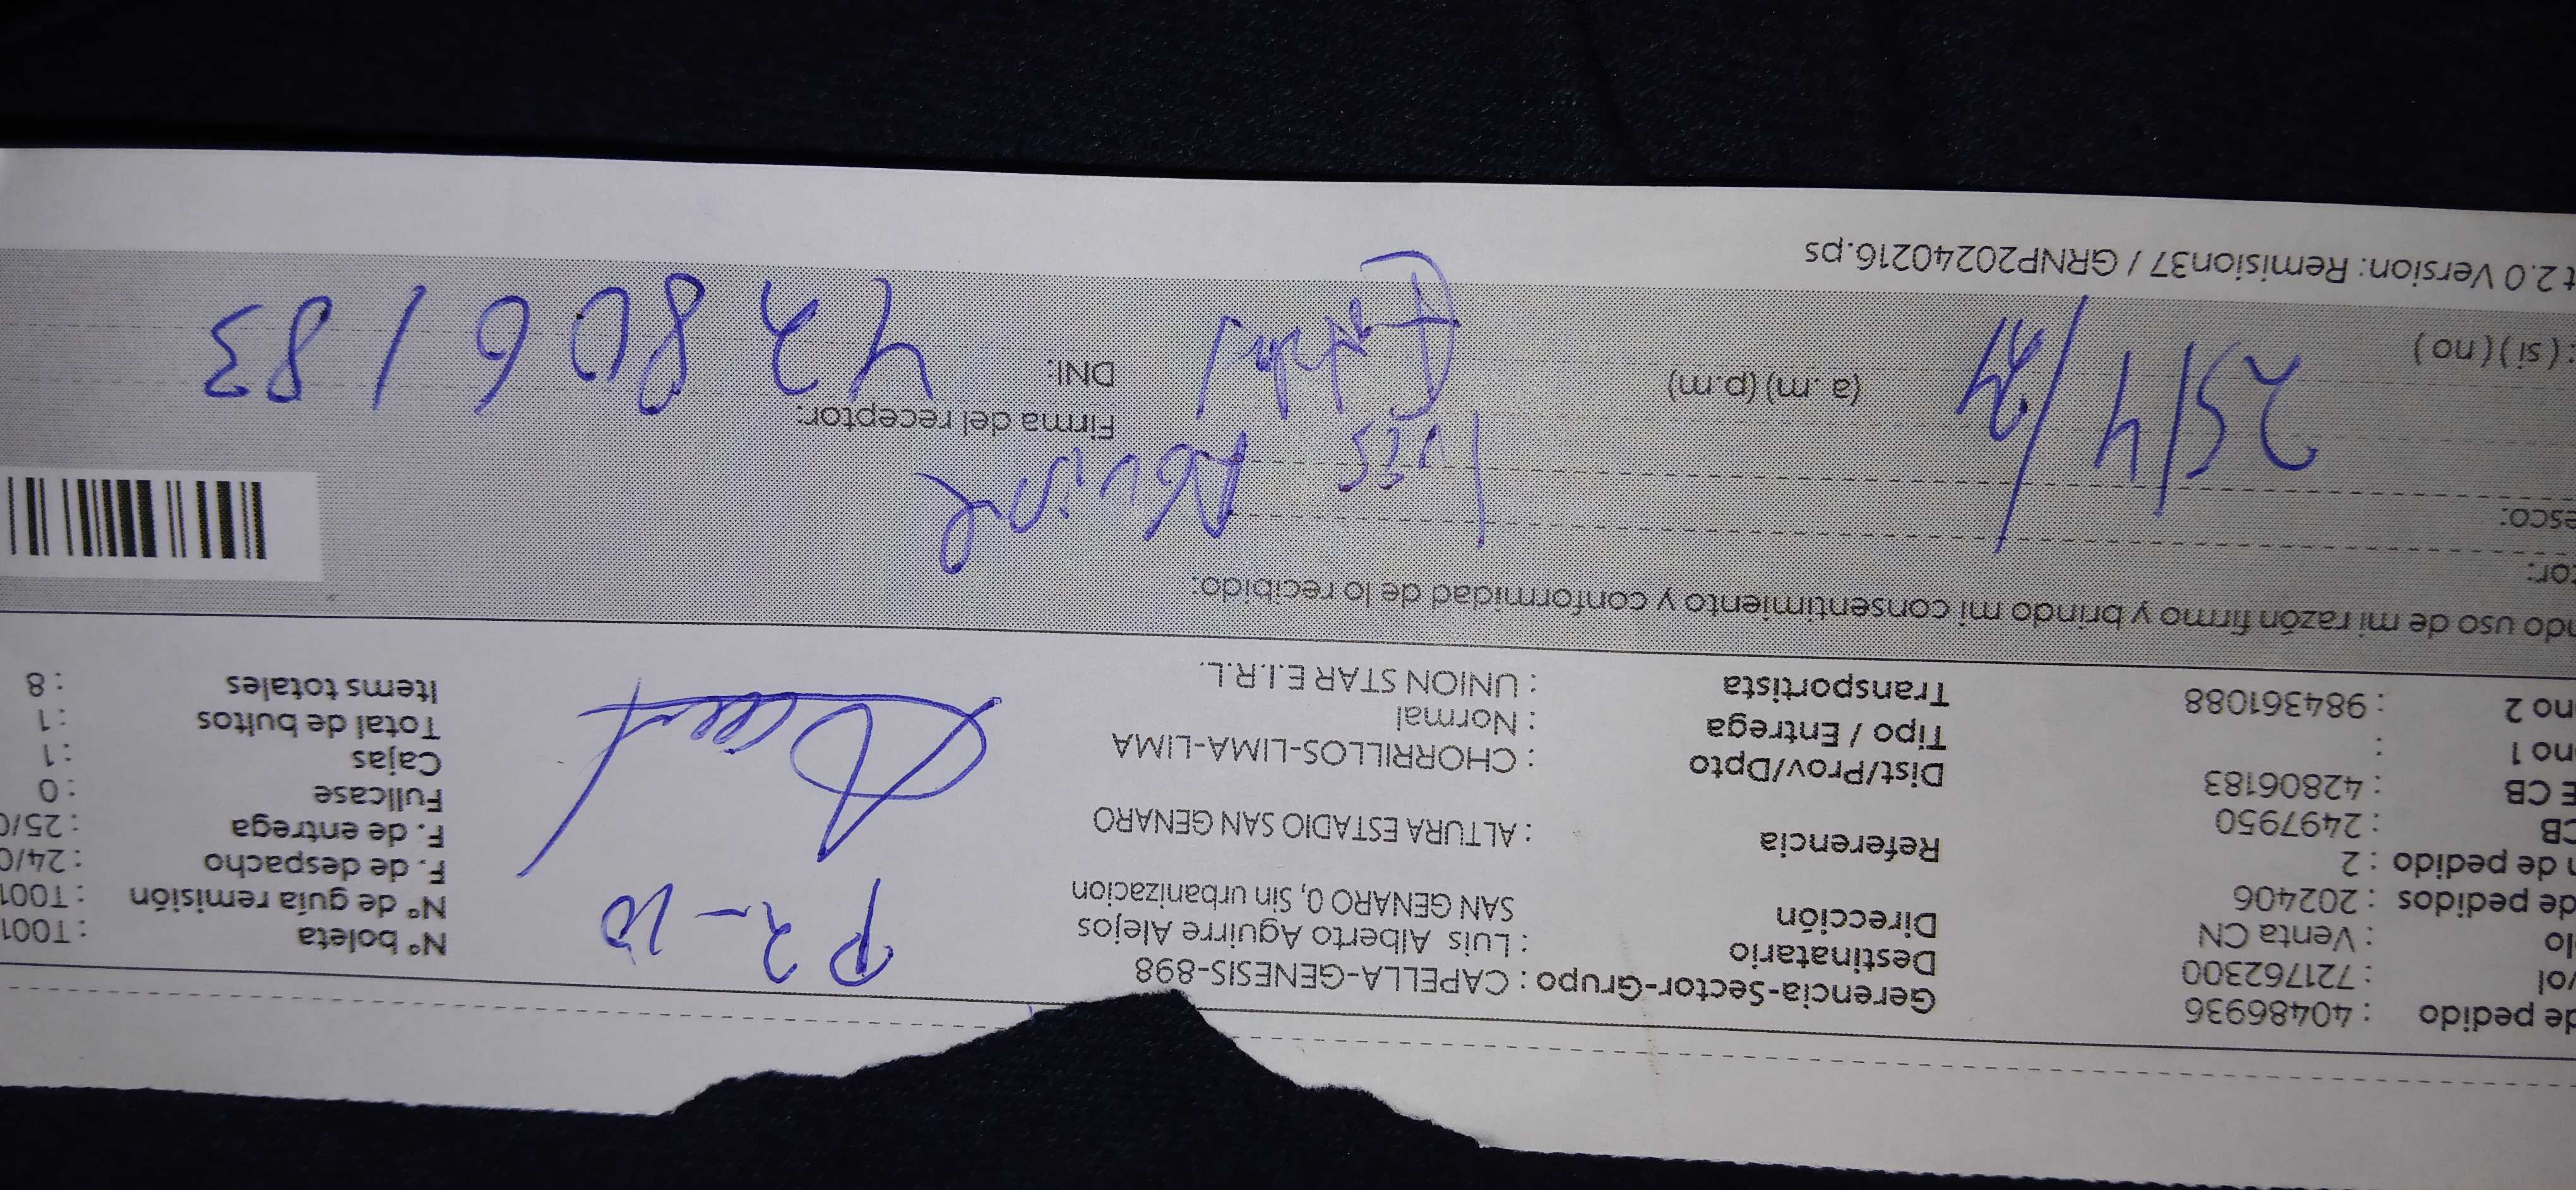 de pedido : 40486936
Gerencia-Sector-Grupo : CAPELLA-GENESIS-898
: 721762300
Destinatario : Luis Alberto Aguirre Alejos
: Venta CN
Dirección SAN GENARO 0, Sin urbanizacion
de pedidos : 202406
de pedido : 2
Referencia : ALTURA ESTADIO SAN GENARO
CB : 2497950
CB : 42806183
Dist/Prov/Dpto : CHORRILLOS-LIMA-LIMA
no 1 :
Tipo / Entrega : Normal
no 2 : 984361088
Transportista : UNION STAR E.I.R.L.
P2-10
Nº boleta : T001
Nº de guía remisión : T001
F. de despacho : 24/0
F. de entrega : 25/0
Fullcase : 0
Cajas : 1
Total de bultos : 1
Items totales : 8
ndo uso de mi razón firmo y brindo mi consentimiento y conformidad de lo recibido:
tor:
esco:
Luis Aguirre
25/4/24
(a. m) (p.m)
Firma del receptor:
DNI: 42806183
: ( si ) ( no )
t 2.0 Version: Remision37 / GRNP20240216.ps